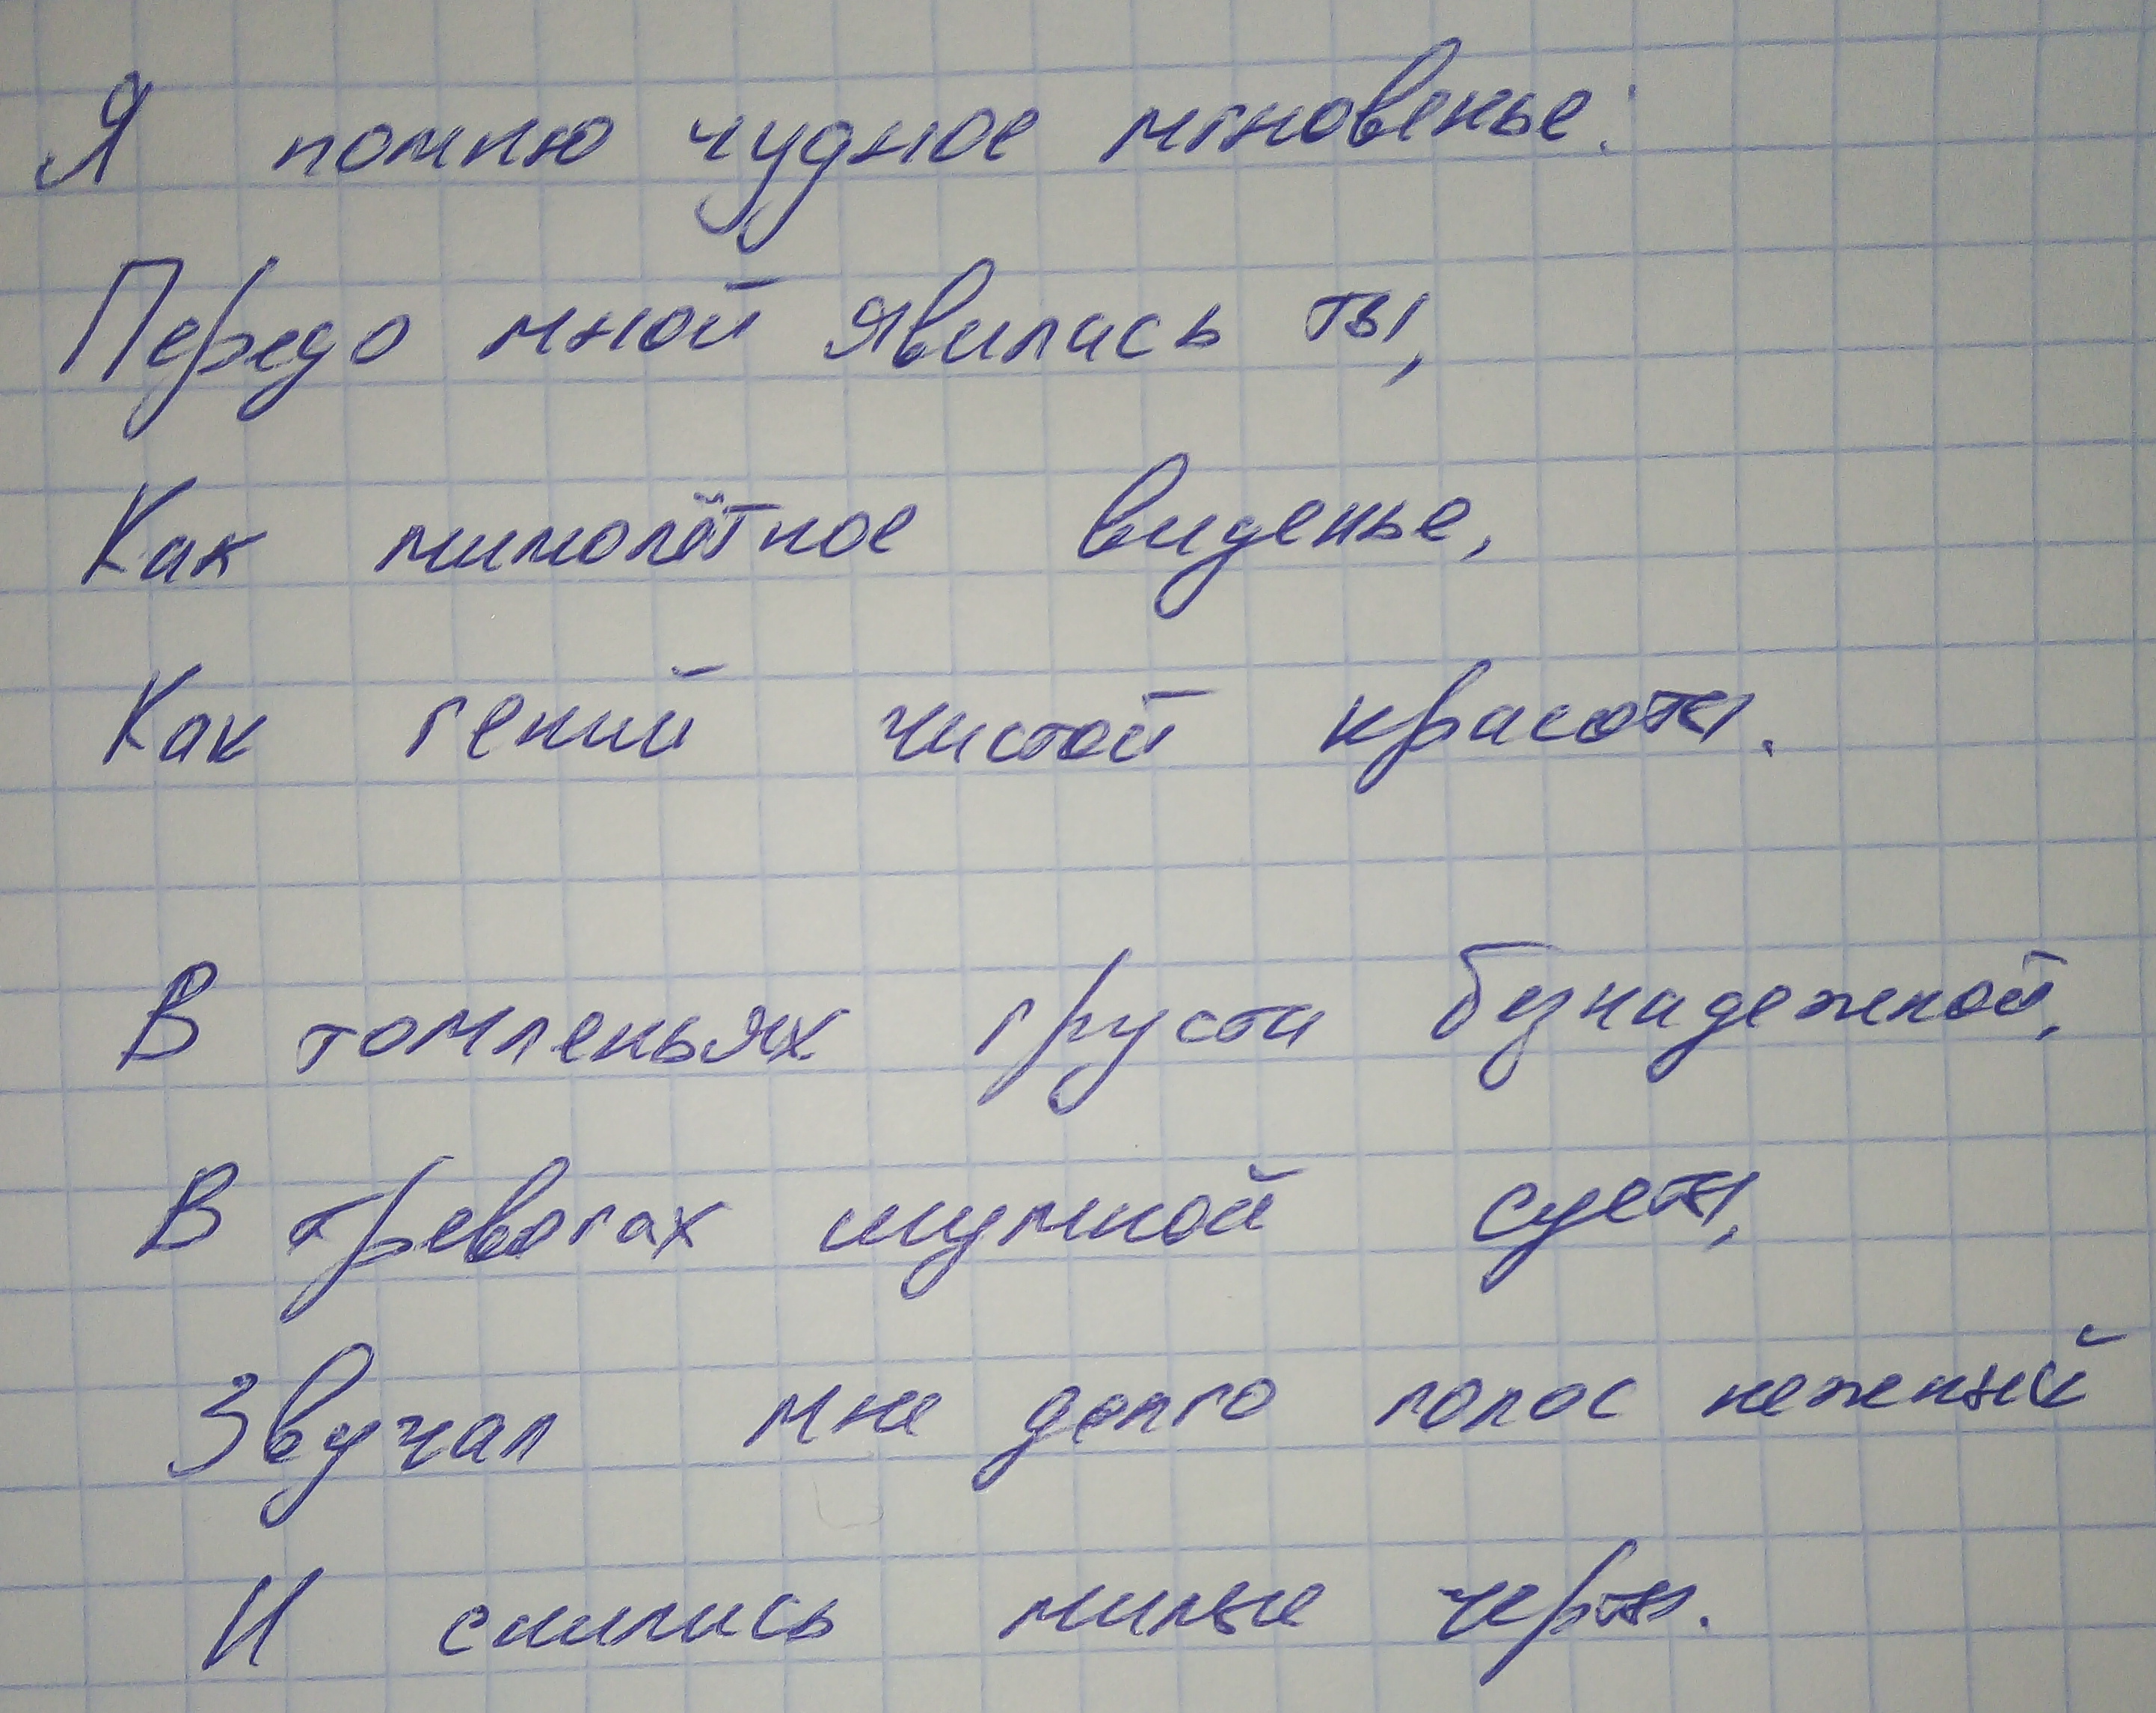 Я помню чудное мгновенье:
Передо мной явилась ты,
Как мимолётное виденье,
Как гений чистой красоты.
В томленьях грусти безнадежной,
В тревогах шумной суеты,
Звучал мне долго голос нежный
И снились милые черты.